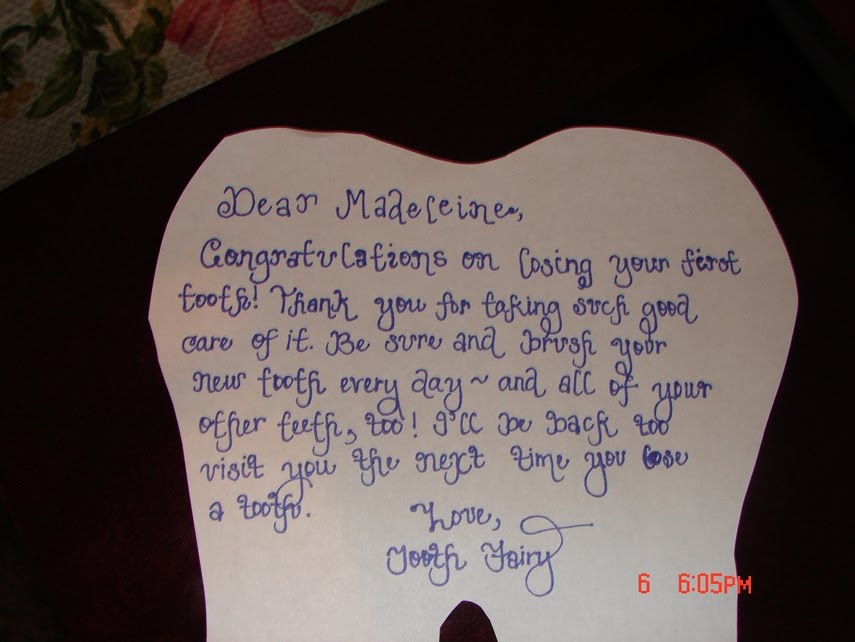 Dear Madeleine,
Congratulations on losing your first
tooth! Thank you for taking such good
care of it. Be sure and brush your
new tooth every day ~ and all of your
other teeth, too! I'll be back too
visit you the next time you lose
a tooth.
Love,
Tooth Fairy
6 6:05PM